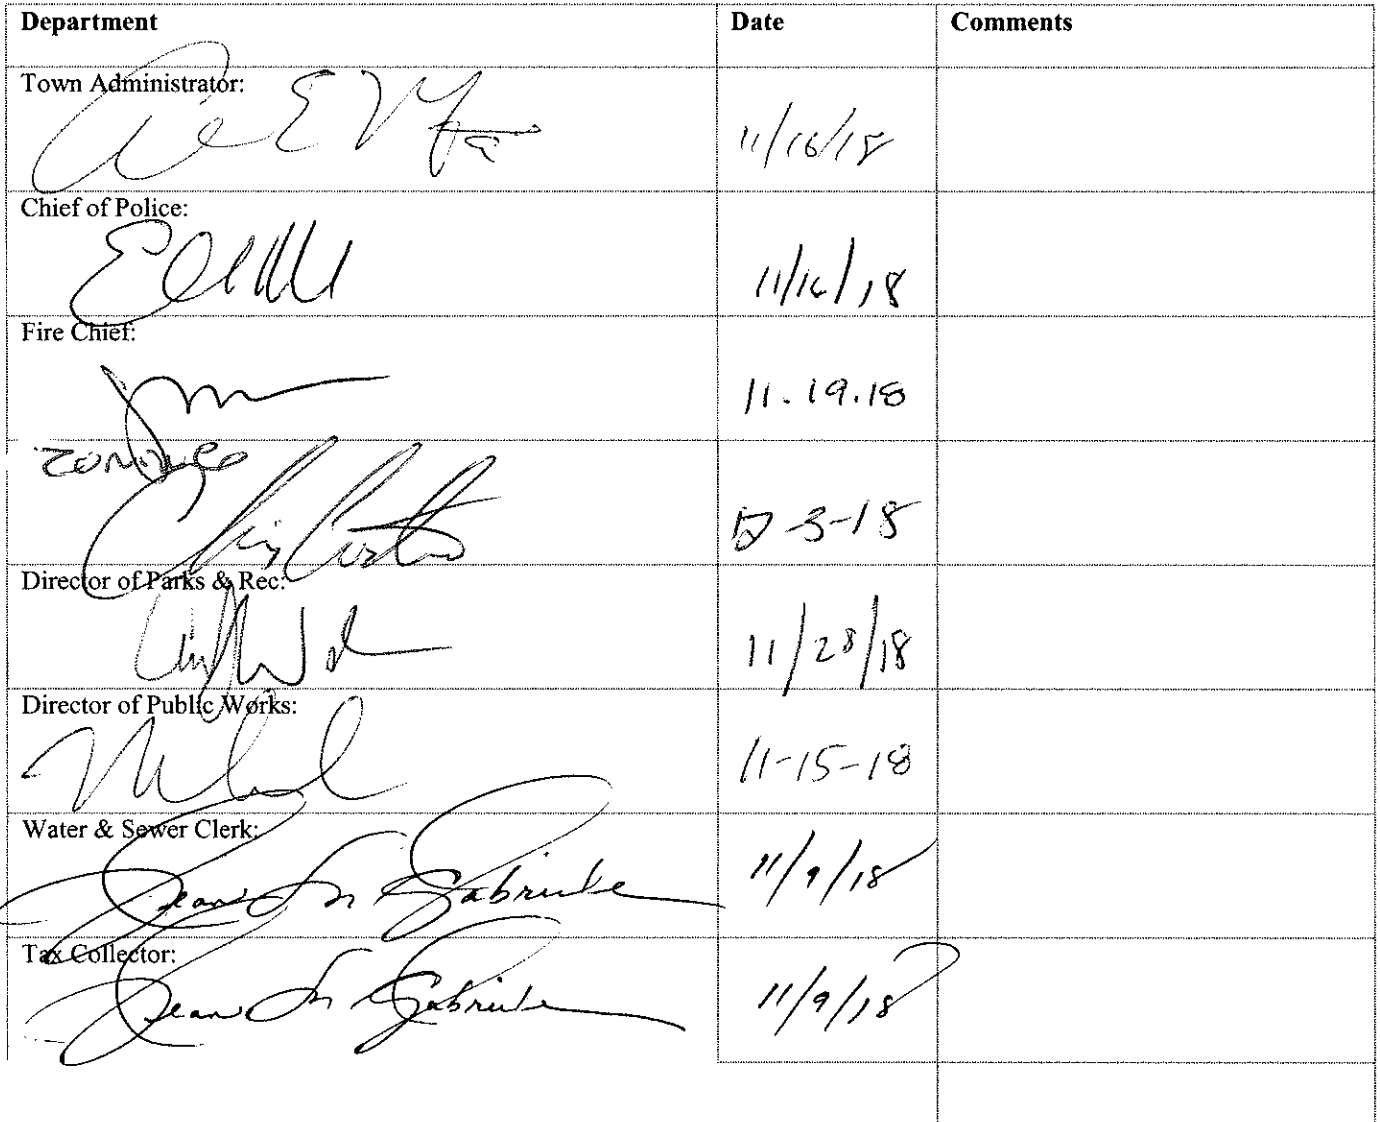 Department Date Comments
Town Administrator:
11/16/18
Chief of Police:
11/16/18
Fire Chief:
11.19.18
ZONING
12-3-18
Director of Parks & Rec:
11/28/18
Director of Public Works:
11-15-18
Water & Sewer Clerk:
Jean M Gabriele 11/9/18
Tax Collector:
Jean M Gabriele 11/9/18